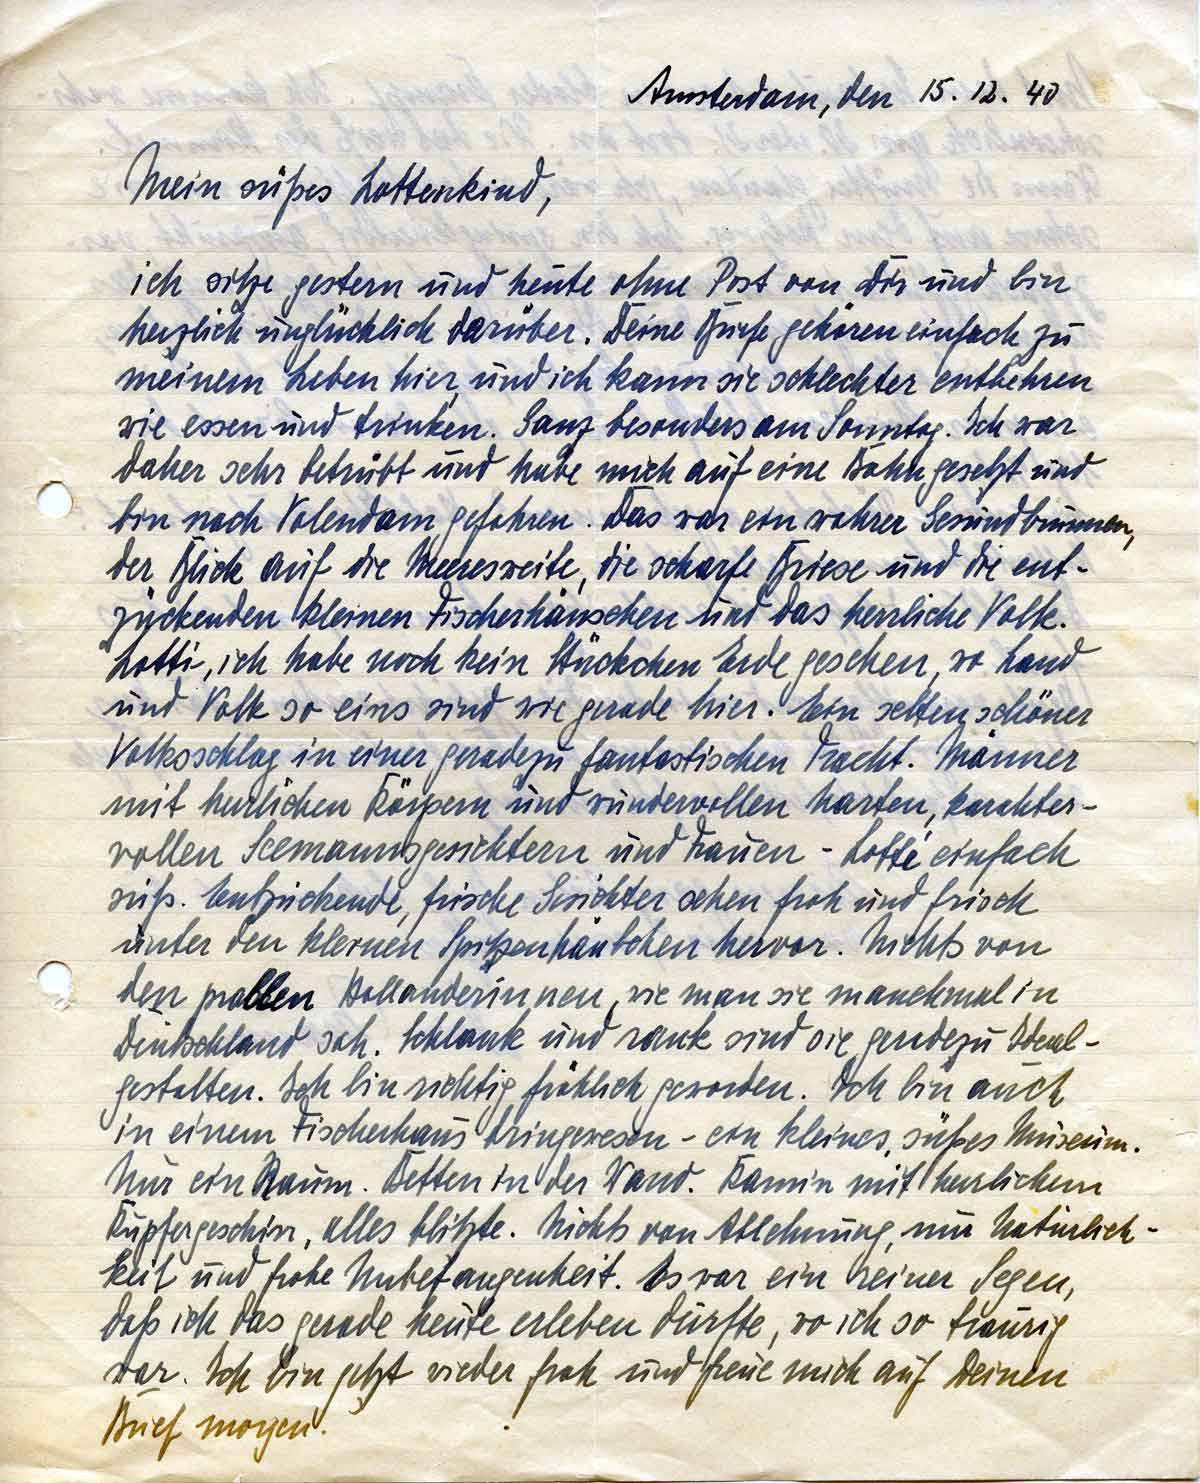 Amsterdam, den 15. 12. 40
Mein süßes Lottenkind,
ich sitze gestern und heute ohne Post von Dir und bin
herzlich unglücklich darüber. Deine Briefe gehören einfach zu
meinem Leben hier, und ich kann sie schlechter entbehren
wie essen und trinken. Ganz besonders am Sonntag. Ich war
daher sehr betrübt und habe mich auf eine Bahn gesetzt und
bin nach Volendam gefahren. Das war ein wahrer Gesundbrunnen,
der Blick auf die Meeresweite, die scharfe Briese und die ent-
zückenden kleinen Fischerhäuschen und das herrliche Volk.
Lotti, ich habe noch kein Stückchen Erde gesehen, wo Land
und Volk so eins sind wie gerade hier. Ein selten schöner
Volksschlag in einer geradezu fantastischen Tracht. Männer
mit herrlichen Körpern und wundervollen harten, karakter-
vollen Seemannsgesichtern und Frauen - Lotti einfach
süß. Entzückende, frische Gesichter sehen froh und frisch
unter den kleinen Spitzenhäubchen hervor. Nichts von
den prallen Holländerinnen, wie man sie manchmal in
Deutschland sah. Schlank und rank sind sie, geradezu Ideal-
gestalten. Ich bin richtig fröhlich geworden. Ich bin auch
in einem Fischerhaus dringewesen - ein kleines, süßes Museum.
Nur ein Raum. Betten in der Wand. Kamin mit herrlichem
Kupfergeschirr, alles blitzte. Nichts von Ablehnung, nur Natürlich-
keit und frohe Unbefangenheit. Es war ein reiner Segen,
daß ich das gerade heute erleben durfte, wo ich so traurig
war. Ich bin jetzt wieder froh und freue mich auf Deinen
Brief morgen.